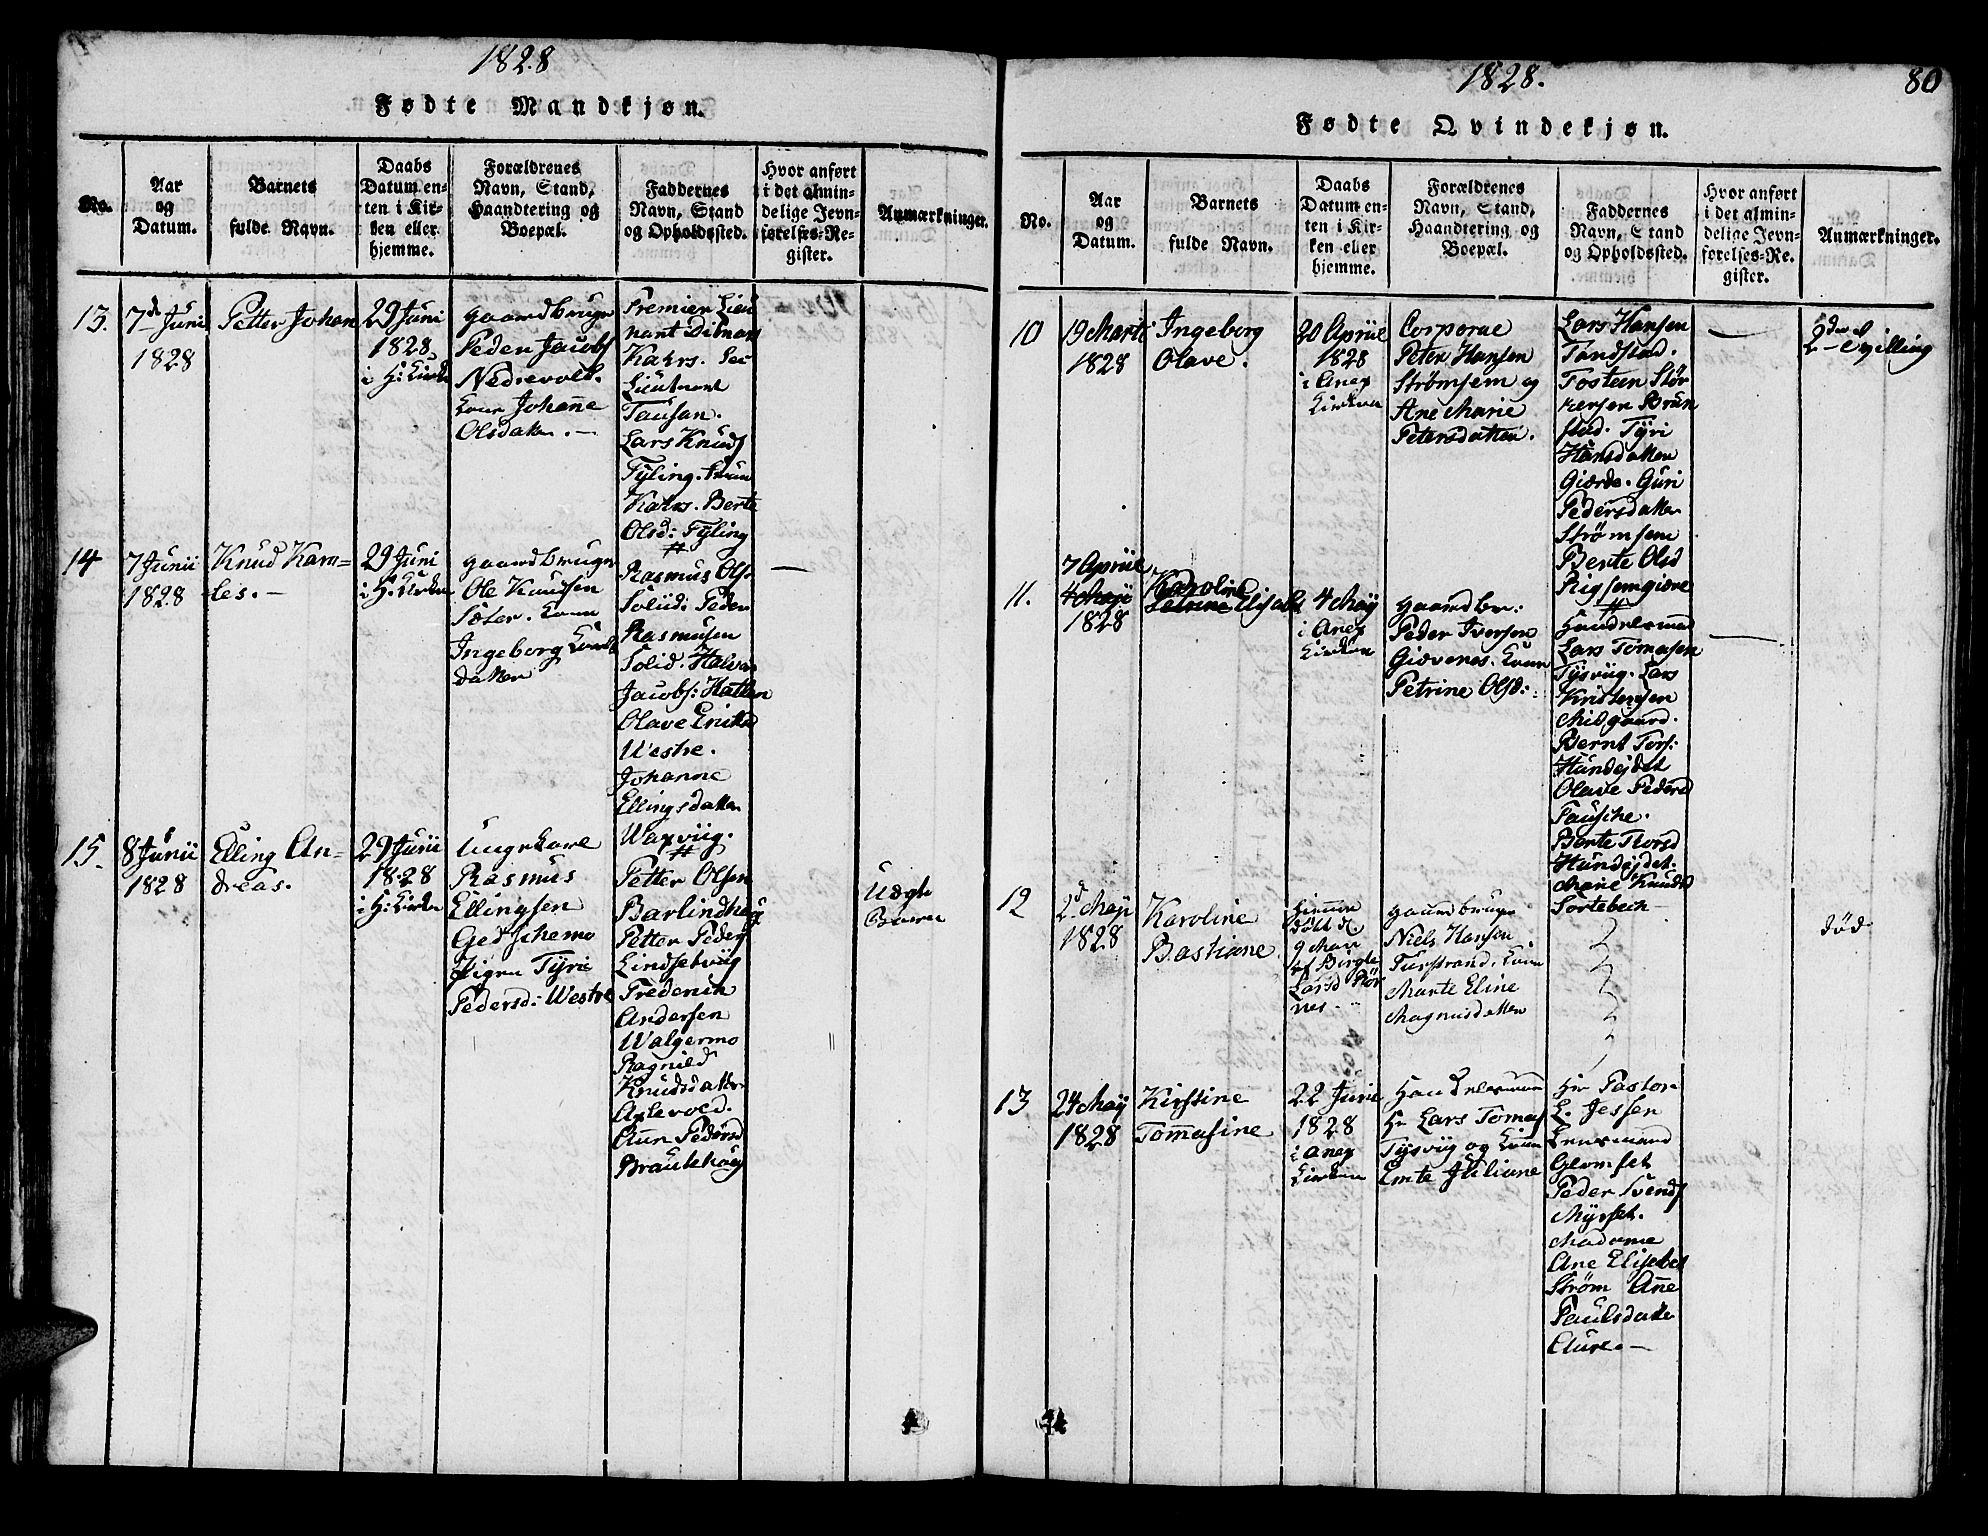 1828
Fødte Mandkjøn.
No.
Aar
og
Datum.
Barnets
fulde Navn.
Daabs
Datum en-
ten i Kir-
ken eller
hjemme.
Forældrenes
Navn, Stand,
Haandtering og
Boepæl.
Faddernes
Navn, Stand
og Opholdssted.
Hvor anført
i det almin-
delige Jevn-
førelses-Re-
gister.
Anmærkninger.
13.
7de Juni
1828
Petter Johan
29 Juni
1828
i H: Kirke
gaardbruger
Peder Jacobs
Nedrevold.
Kone Johanne
Olsdatter. —
Premier Lieu
nant Ditman
Kahrs. Sec
Lieutnant
Tausan.
Lars Knuds
Fyling. Fruen
Kahrs. Berte
Olsd: Fyling
14
7 Junii
1828
Knud Kare=
lies. —
29 Juni
i H: Kirken
gaardbruger
Ole Knudsen
Sæter. Kone
Ingeborg Knuds
datter
Rasmus Ols
Soliid: Peder
Rasmusen
Solid. Halvor
Jacobs: Hatlen
Olave Eriksd
Westre.
Johanne
Ellingsdatter
Waxviig.
—
15.
8 Junii
1828
Elling An-
dreas.
29 Junii
1828
i H: Kirken
Ungekarl
Rasmus
Ellingsen
Gjedschemo
Pigen Tyri
Pedersd: Westre
Petter Olsen
Barlindhoug
Petter Peders
Lindsetviig
Frederik
Andersen
Walgermo
Ragnild
Knudsdatter
Aglevold.
Ane Pedersd
Brautehoug
Uægte
Barn
1828.
80
Fødte Qvindekjøn.
No.
Aar
og
Datum.
Barnets
fulde Navn.
Daabs
Datum en-
ten i Kir-
ken eller
hjemme.
Forældrenes
Navn, Stand,
Haandtering og
Boepæl.
Faddernes
Navn, Stand
og Opholdssted.
Hvor anført
i det almin-
delige Jevn-
førelses-Re-
gister.
Anmærkninger.
10
19 Marti
1828
Ingeborg
Olave.
20 Apriil
1828
i Anex
Kirken
Corporal
Peter Hansen
Strømsem og
Ane Marie
Petersdatter.
Lars Hansen
Tandstad.
Tosten Stør
kersen Brun
stad. Tyri
Hansdatter
Giærde. Guri
Pedersdatter
Strømsem
Berte Olsd
Rigsemgiære
—
2den Tvilling
11.
7 Apriil
4 Maji
1828
Karoline
Petrine Elisabt
4 May
i Anex
Kirken
gaardbr:
Peder Iversen
Giævenes. Kone
Petrine Olsd:
Handelsmand
Lars Tomasen
Tysviig. Lars
Kristensen
Midgaard.
Bernt Tors:
Hundejdet
Olave Pedersd
Fausche.
Berte Torsd
Hundejdet.
Marie Knudsd
Sortebech
—
12
2d Maji
1828
Karoline
Bastiane.
Hiemme
døbt d
9 Mai
af Birgte
Larsd Rør
nes.
gaardbruger
Niels Hansen
Turstrand. Kone
Marte Eline
Magnusdatter
død
13
24 May
1828
Kirstine
Tommasine
22 Junii
1828
i Anex
Kirken
Handelsmand
Hr Lars Tomas
Tysviig og Kone
Emte Juliane
Hr Pastor
L. Jessen
Lensmand
Glomset
Peder Svends
Myrset.
Madame
Ane Elisabet
Strøm Ane
Paulsdatter
Aure. —